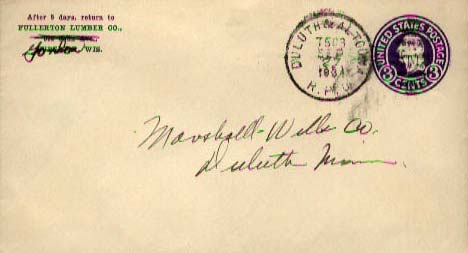 After 5 days, return to
FULLERTON LUMBER CO.,
Gordon WIS.
DULUTH & ALTOONA
R.P.O.
UNITED STATES POSTAGE
3 CENTS 3
Marshall-Wells Co.
Duluth Minn.